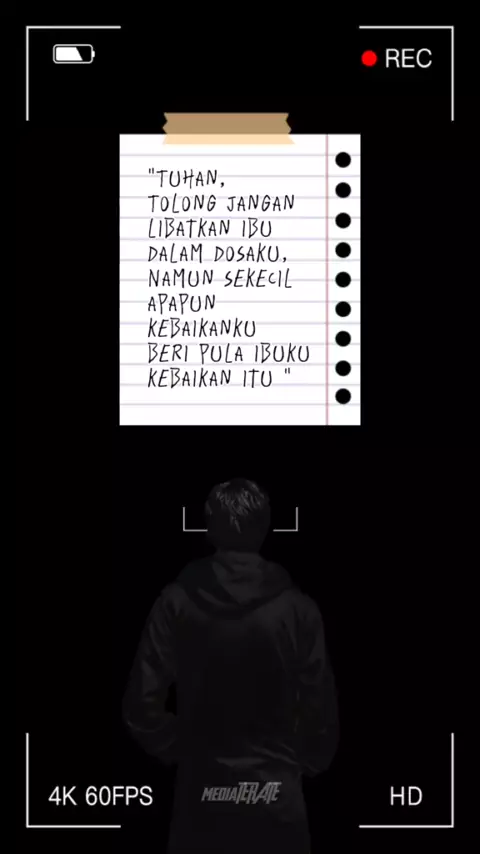 REC
"TUHAN,
TOLONG JANGAN
LIBATKAN IBU
DALAM DOSAKU,
NAMUN SEKECIL
APAPUN
KEBAIKANKU
BERI PULA IBUKU
KEBAIKAN ITU "
MEDIATERATE
4K 60FPS
HD